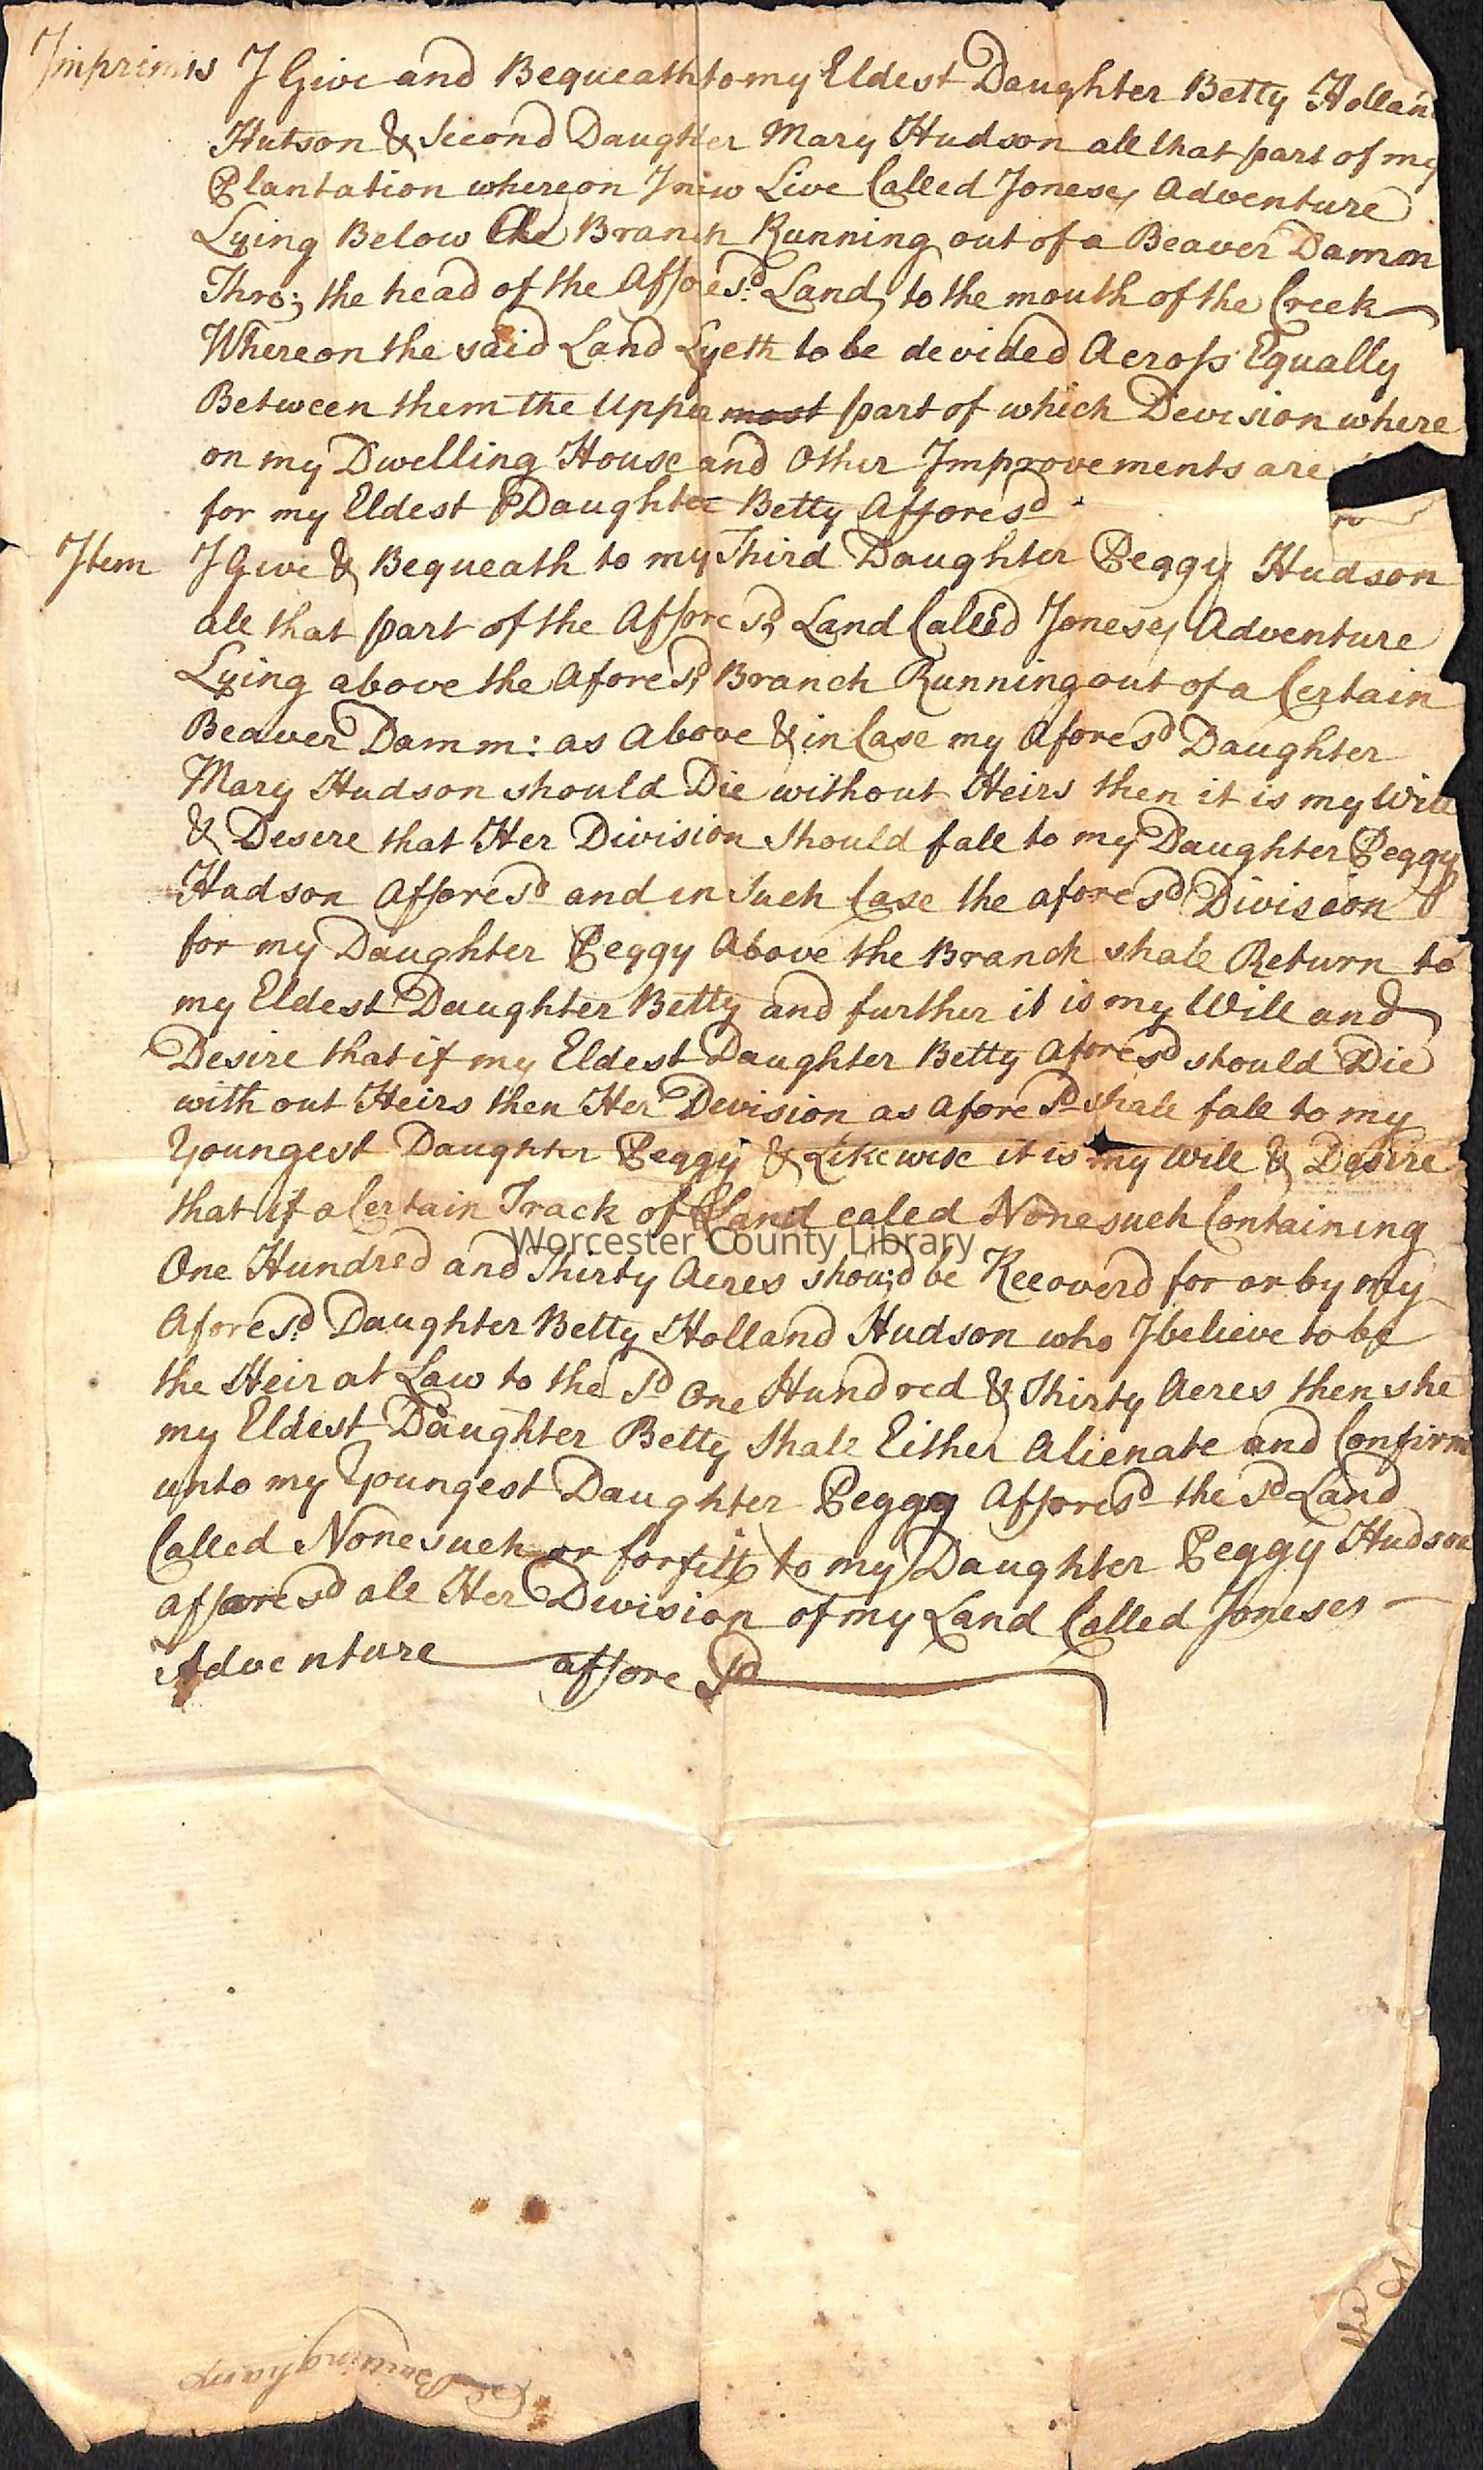 Imprimis I Give and Bequeath to my Eldest Daughter Betty Holland
Hutson & Second Daughter Mary Hudson all that part of my
Plantation whereon I now Live Called Joneses Adventure
Lying Below the Branch Running out of a Beaver Damm
Thro; the head of the Affores:d Land, to the mouth of the Creek
Whereon the said Land Lyeth to be devided Across Equally
Between them the Upper most part of which Devision where
on my Dwelling House and Other Improvements are
for my Eldest Daughter Betty Affores:d
Item I Give & Bequeath to my Third Daughter Peggy Hudson
all that part of the Affore sd, Land Called Joneses Adventure
Lying above the Afore sd, Branch Running out of a Certain
Beaver Damm: as Above & in Case my Afores:d Daughter
Mary Hudson should Die without Heirs then it is my Will
& Desire that Her Division Should fall to my Daughter Peggy
Hudson Affore sd and in Such Case the afore sd Division
for my Daughter Peggy Above the Branch shall Return to
my Eldest Daughter Betty and further it is my Will and
Desire that if my Eldest Daughter Betty Afores:d should Die
with out Heirs then Her Devision as Afore sd shall fall to my
Youngest Daughter Peggy & Likewise it is my Will & Desire
that if a Certain Track of Land caled Nonesuch Containing
One Hundred and Thirty Acres should be Recoverd for or by my
Afore sd. Daughter Betty Holland Hudson who I believe to be
the Heir at Law to the sd One Hundred & Thirty Acres then she
my Eldest Daughter Betty Shall Either Alienate and Confirm
unto my Youngest Daughter Peggy Affores:d the sd Land
Called Nonesuch or forfitt to my Daughter Peggy Hudson
affore sd all Her Devision of my Land Called Joneses
Adventure affore sd
Worcester County Library
the